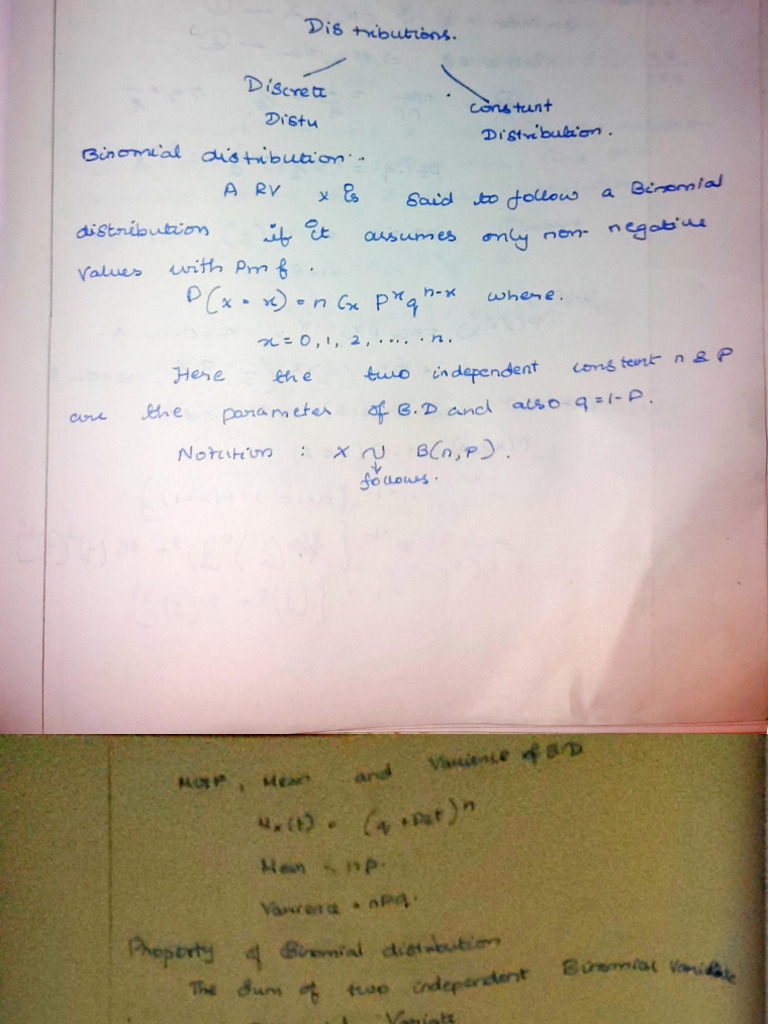 Distributions.
Discrete
Distu
constant
Distribution.
Binomial distribution:-
A RV x is said to follow a Binomial
distribution if it assumes only non-negative
values with Pmf.
P(x = x) = n Cx p^x q^n-x where.
x = 0, 1, 2, ..... n.
Here the two independent constant n & P
are the parameter of B.D and also q = 1-P.
Notation : X ~ B(n, P).
follows.
MGF, Mean and Varience of BD
Mx(t) = (q + pet)^n
Mean = np.
Varience = npq.
Property of Binomial distribution
The Sum of two independent Binomial Variate
Variate